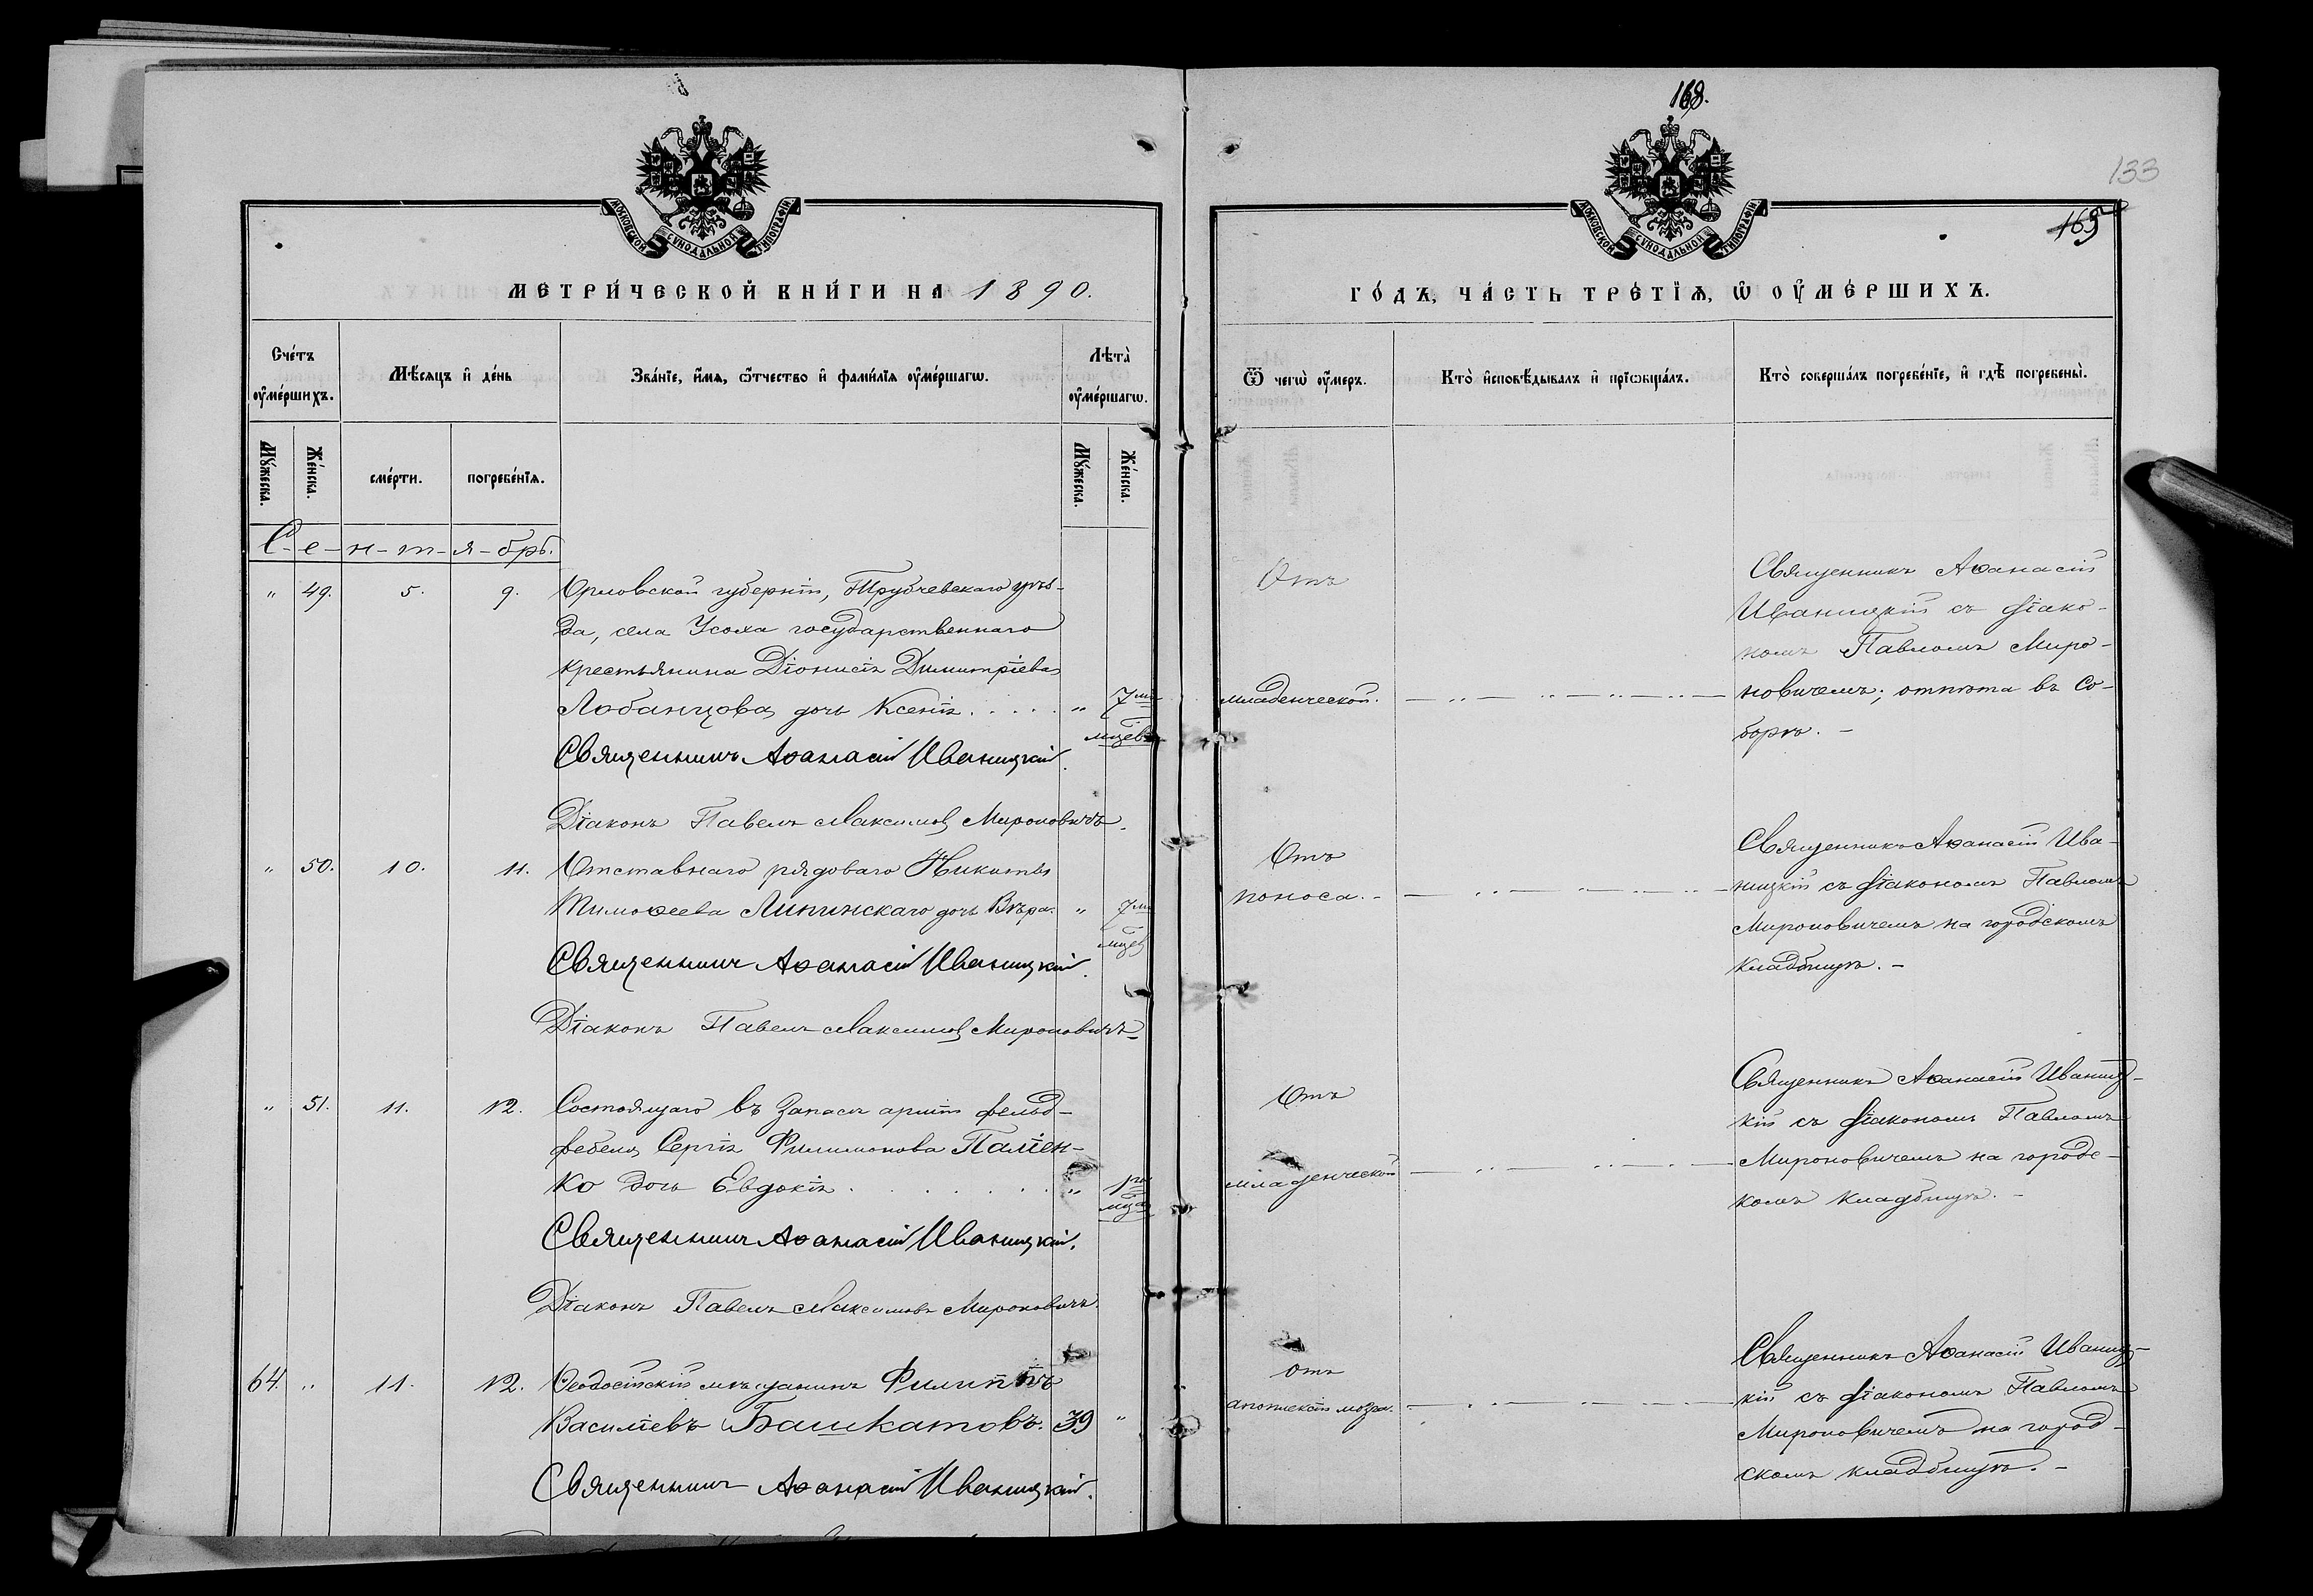 168.
133
165
МОСКОВСКОЙ СѴНОДАЛЬНОЙ ТИПОГРАФІИ
МОСКОВСКОЙ СѴНОДАЛЬНОЙ ТИПОГРАФІИ
МЕТРИ́ЧЕСКОЙ КНИ́ГИ НА 1890.
ГО́ДЪ, ЧА́СТЬ ТРЕ́ТІѦ, Ѡ ОУ҆МЕ́РШИХЪ.
Сче́тъ оу҆ме́ршихъ.
Мѣ́сяцъ и҆ де́нь
Зва́нїе, и҆́мѧ, ѻ҆́тчество и҆ фами́лїѧ оу҆ме́ршагѡ.
Лѣта̀ оу҆ме́ршагѡ.
Ѿ чегѡ̀ оу҆́меръ.
Кто̀ и҆сповѣ́дывалъ и҆ прїѡбща́лъ.
Кто̀ соверша́лъ погребе́нїе, и҆ гдѣ̀ погребены̀.
Мꙋ́жеска.
Же́нска.
сме́рти.
погребе́нїѧ.
Мꙋ́жеска.
Же́нска.
С-е-н-т-я-брь.
" 49. 5. 9. Орловской губерніи, Трубчевскаго уѣз-
да, села Усоха государственнаго
крестьянина Діонисія Димитріева
Лобанцова дочь Ксенія. . . . . " 7ми
мцевъ
Священникъ Аѳанасій Иваницкій.
Діаконъ Павелъ Максимовъ Мироновичъ.
Отъ
младенческой.
Священникъ Аѳанасій
Иваницкій съ діако-
номъ Павломъ Миро-
новичемъ; отпѣта въ Со-
борѣ. -
" 50. 10. 11. Отставнаго рядоваго Никиты
Тимоѳеева Липинскаго дочь Вѣра. " 7ми
мцев
Священникъ Аѳанасій Иваницкій.
Діаконъ Павелъ Максимовъ Мироновичъ
Отъ
поноса. -
Священникъ Аѳанасій Ива-
ницкій съ діакономъ Павломъ
Мироновичемъ на городскомъ
кладбищѣ. -
" 51. 11. 12. Состоящаго въ запасѣ арміи фельд-
фебеля Сергія Филимонова Палѣен-
ко дочь Евдокія . . . . . . . "
мца
Священникъ Аѳанасій Иваницкій.
Діаконъ Павелъ Максимовъ Мироновичъ.
Отъ
младенческой
Священникъ Аѳанасій Иваниц-
кій съ діакономъ Павломъ
Мироновичемъ на городс-
комъ кладбищѣ. -
64. " 11. 12. Ѳеодосійскій мѣщанинъ Филиппъ
Василіевъ Башкатовъ. 39 "
Священникъ Аѳанасій Иваницкій.
отъ
апоплексіи мозга.
Священникъ Аѳанасій Иваниц-
кій съ діакономъ Павломъ
Мироновичемъ на город-
скомъ кладбищѣ. -